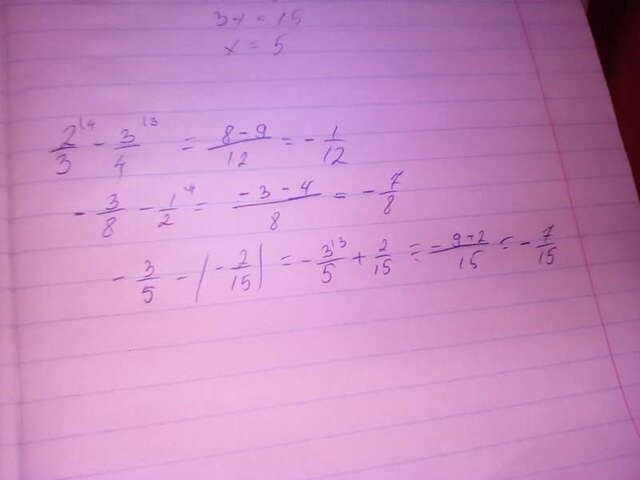 3x = 15
x = 5
2/3 ⁽⁴ - 3/4 ⁽³ = (8-9)/12 = - 1/12
- 3/8 - 1/2 ⁽⁴ = (-3-4)/8 = - 7/8
- 3/5 - (- 2/15) = - 3/5 ⁽³ + 2/15 = (-9+2)/15 = - 7/15